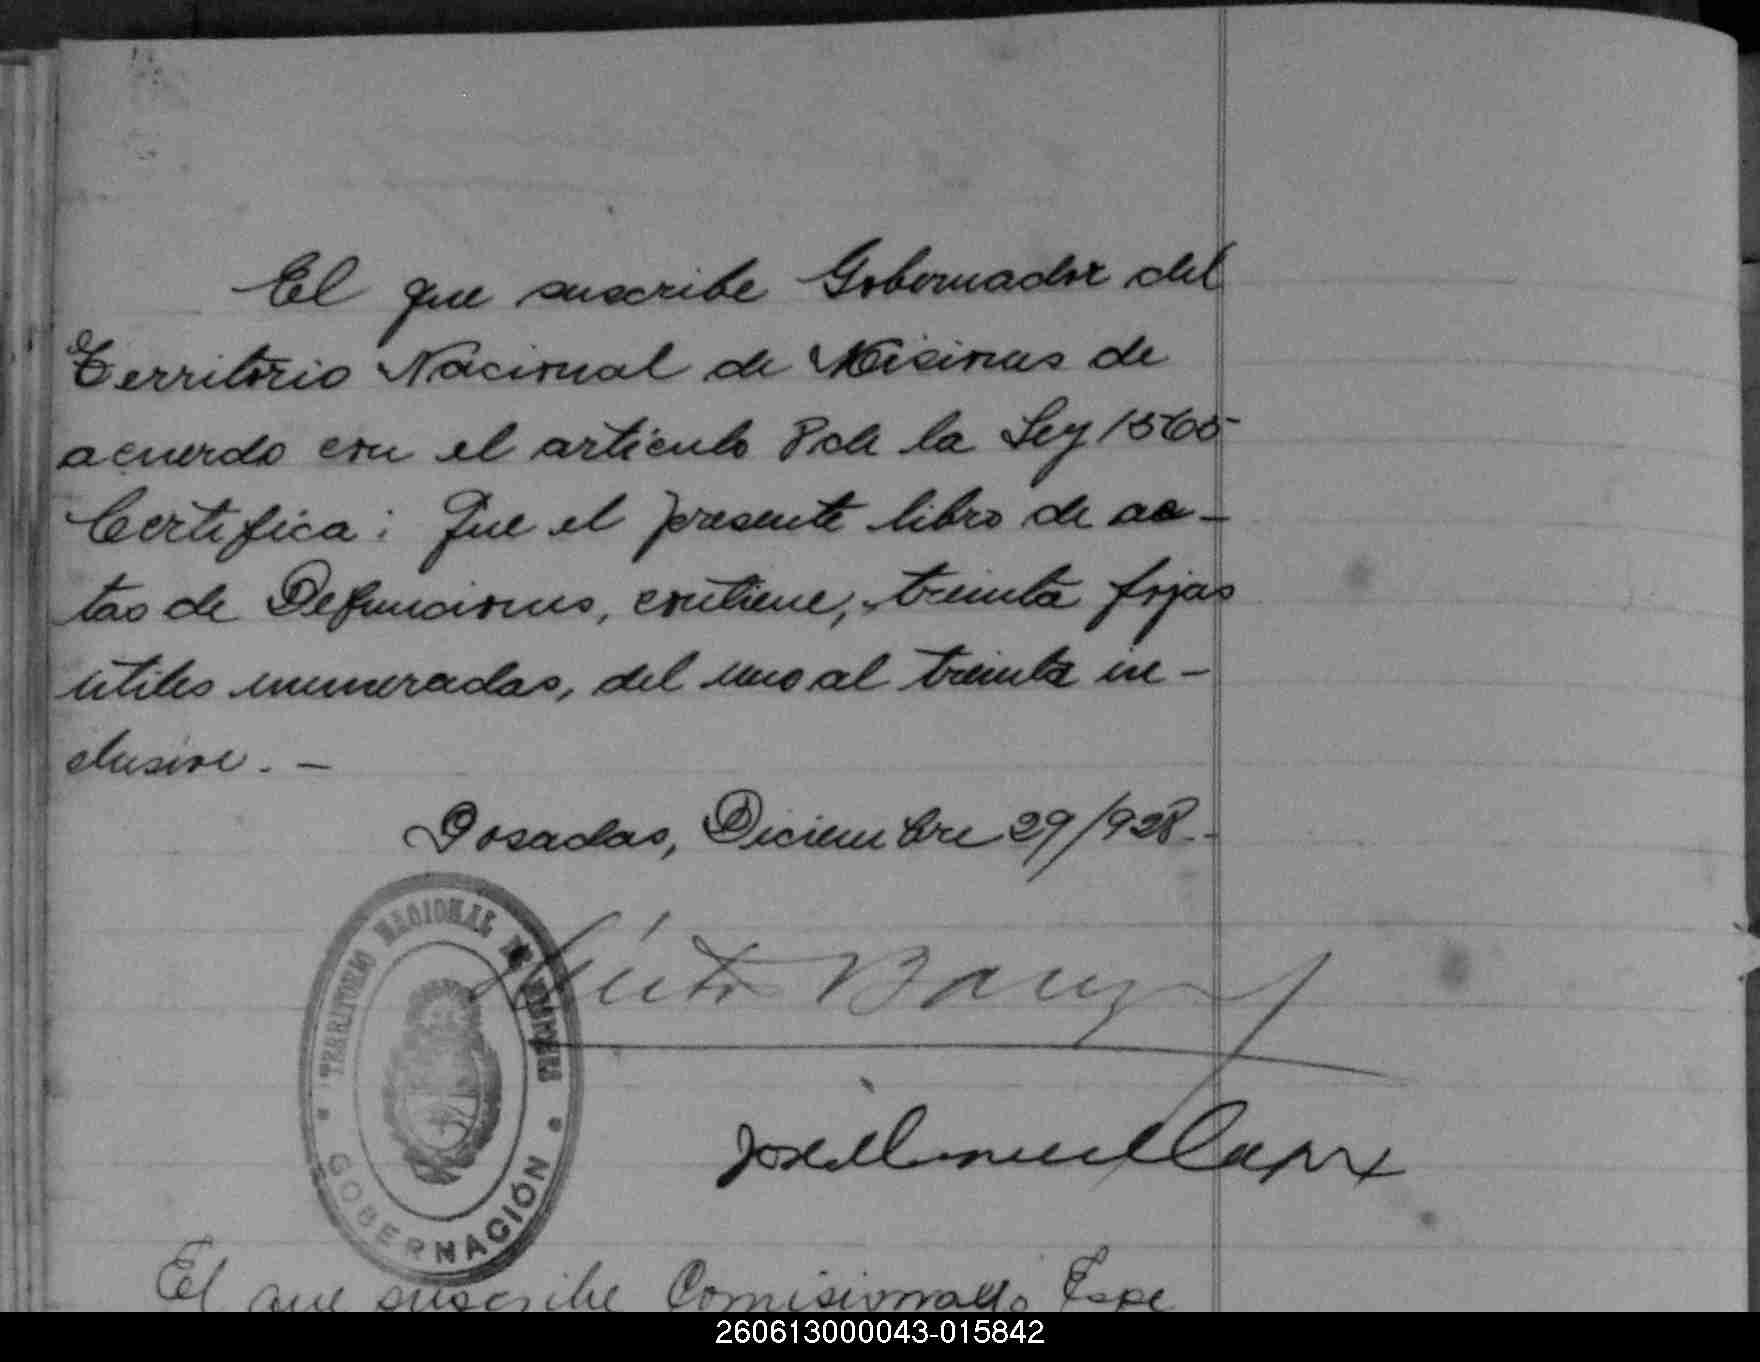 El que suscribe Gobernador del
Territorio Nacional de Misiones de
acuerdo con el articulo 8 de la Ley 1565
Certifica: Que el presente libro de ac-
tas de Defunciones, contiene, treinta fojas
utiles enumeradas, del uno al treinta in-
clusive. -
Posadas, Diciembre 29/928.-
TERRITORIO NACIONAL DE MISIONES
GOBERNACIÓN
El que suscribe Comisionado Espe
260613000043-015842